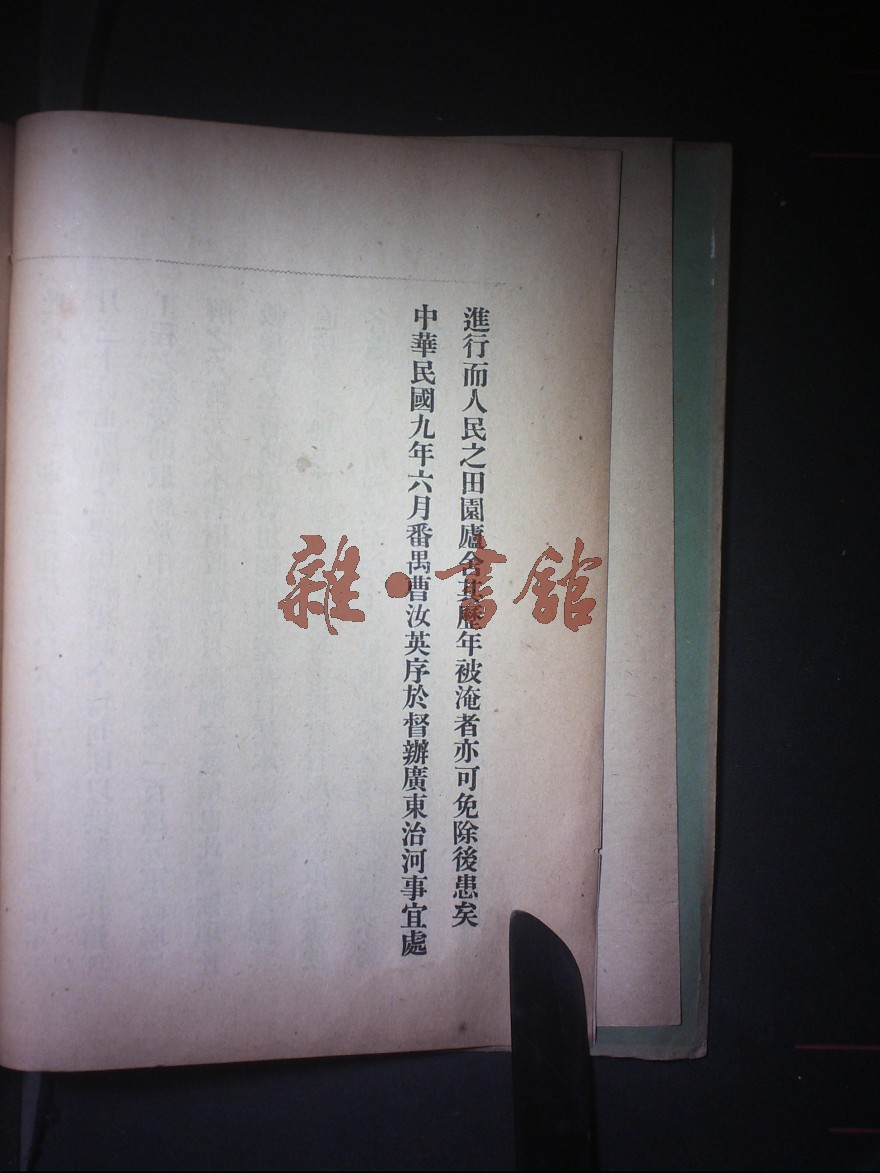 進行而人民之田園廬舍其歷年被淹者亦可免除後患矣
中華民國九年六月番禺曹汝英序於督辦廣東治河事宜處
雜·書館